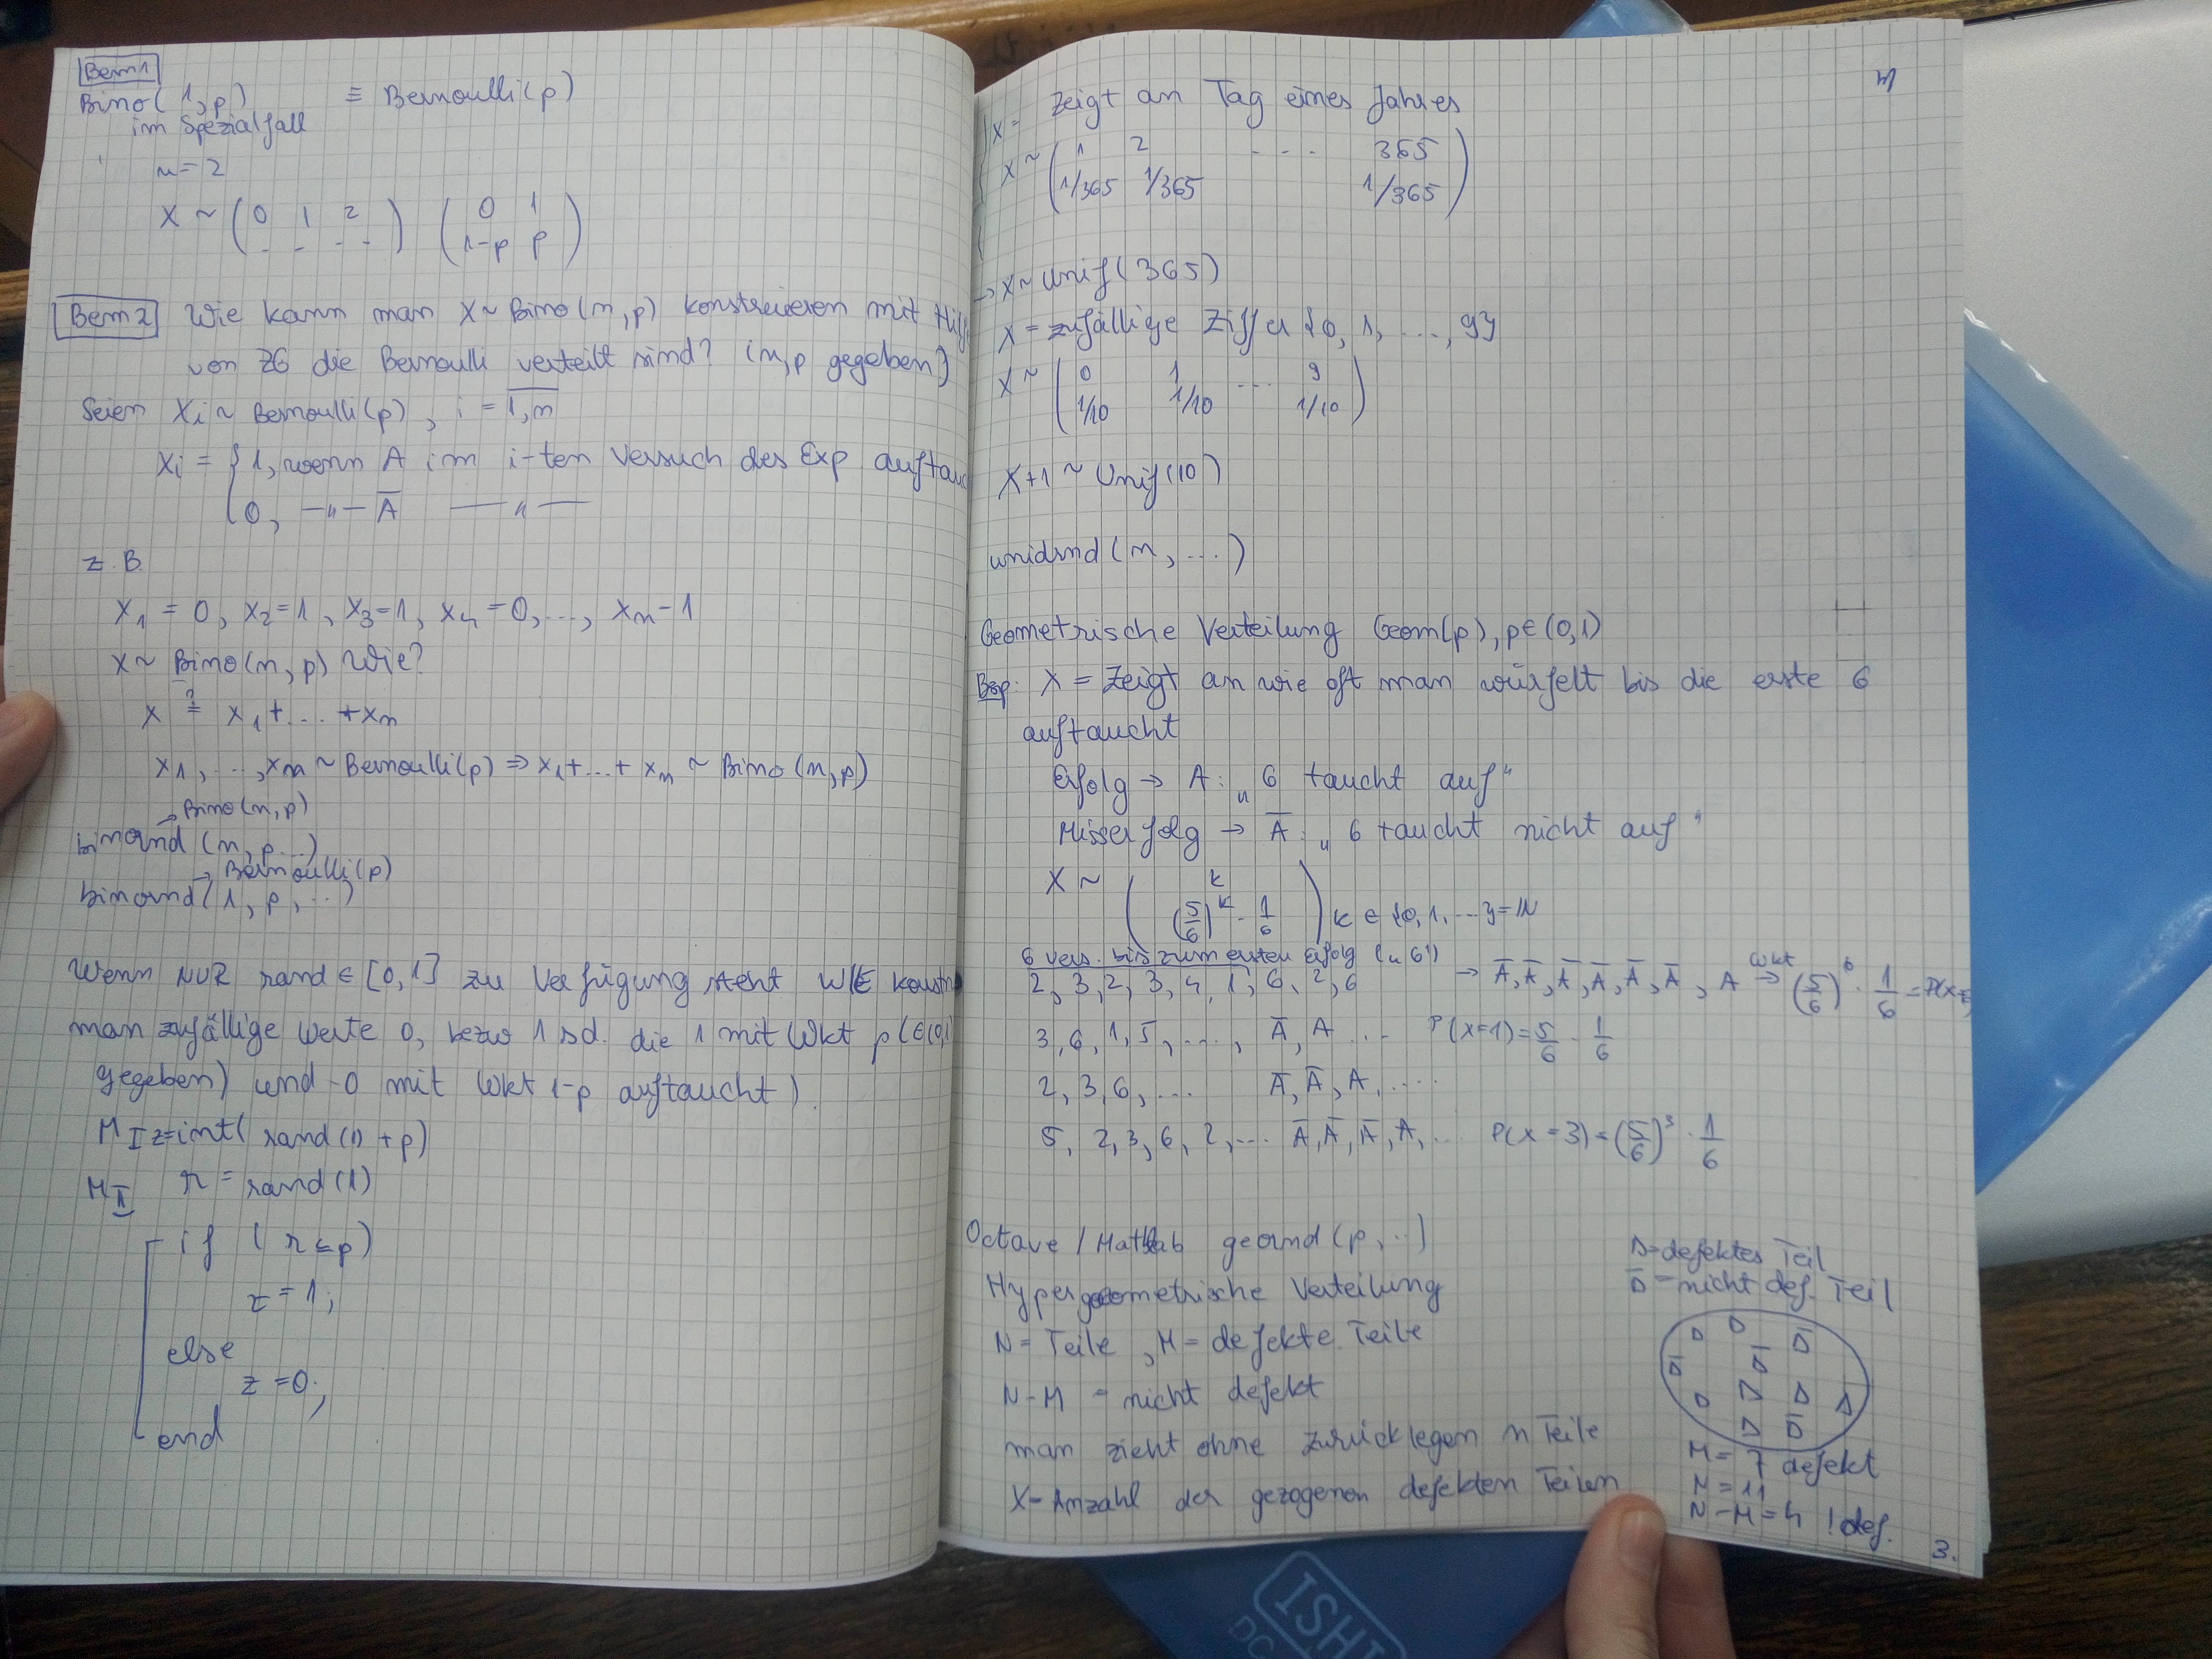 Bem 1
Bino(1,p) ≡ Bernoulli(p)
im Spezialfall
n=2
X ~ (0 1 2 / - - - -) (0 1 / 1-p p)
Bem 2 Wie kann man X~Bino(n,p) konstruieren mit Hilf
von ZG die Bernoulli verteilt sind? (n,p gegeben)
Seien Xi ~ Bernoulli(p), i = \overline{1,n}
Xi = { 1, wenn A im i-ten Versuch des Exp auftauc
0, —"— Ā —"—
z.B.
X₁ = 0, X₂=1, X₃=1, X₄=0, ..., Xn-1
X~ Bino(n,p) Wie?
X ≟ X₁+...+Xn
X1, ..., Xn ~ Bernoulli(p) ⇒ X₁+...+Xn ~ Bino(n,p)
→ Bino(n,p)
binornd (n,p...)
→ Bernoulli(p)
binornd(1, p, ...)
Wenn NUR rand∈[0,1] zu Verfügung steht WIE konstr
man zufällige Werte 0, bezw 1 sd. die 1 mit Wkt p(∈(0,1)
gegeben) und 0 mit Wkt 1-p auftaucht)
M I z=int(rand(1)+p)
M II r = rand(1)
if (r≤p)
z=1;
else
z=0;
end
4
X = zeigt an Tag eines Jahres
X ~ (1 2 ... 365 / 1/365 1/365 1/365)
→ X~Unif(365)
X = zufällige Ziffer {0, 1, ..., 9}
X ~ (0 1 ... 9 / 1/10 1/10 1/10)
X+1 ~ Unif(10)
unidrnd(n, ...)
Geometrische Verteilung Geom(p), p∈(0,1)
Bsp: X = Zeigt an wie oft man würfelt bis die erste 6
auftaucht
Erfolg → A: „6 taucht auf"
Misserfolg → Ā: „6 taucht nicht auf"
X ~ (k / (5/6)^k · 1/6) k ∈ {0,1,...}=ℕ
6 vers. bis zum ersten Erfolg („6")
2, 3, 2, 3, 4, 1, 6, 2, 6 → Ā, Ā, Ā, Ā, Ā, Ā, A Wkt → (5/6)^6 · 1/6 = P(X=6)
3, 6, 1, 5, ..., Ā, A ... P(X=1)= 5/6 · 1/6
2, 3, 6, ... Ā, Ā, A, ....
5, 2, 3, 6, 2, ... Ā, Ā, Ā, A, ... P(X=3)=(5/6)³ · 1/6
Octave/Matlab geornd(p, ..)
Hypergeometrische Verteilung
N= Teile, M= defekte Teile
N-M = nicht defekt
man zieht ohne zurücklegen n Teile
X- Anzahl der gezogenen defekten Teilen
D=defektes Teil
D̄ = nicht def. Teil
D D D̄
D̄ D̄
D D D D
D D̄
M = 7 defekt
N = 11
N-M=4 !def.
3.
ISHI
DC